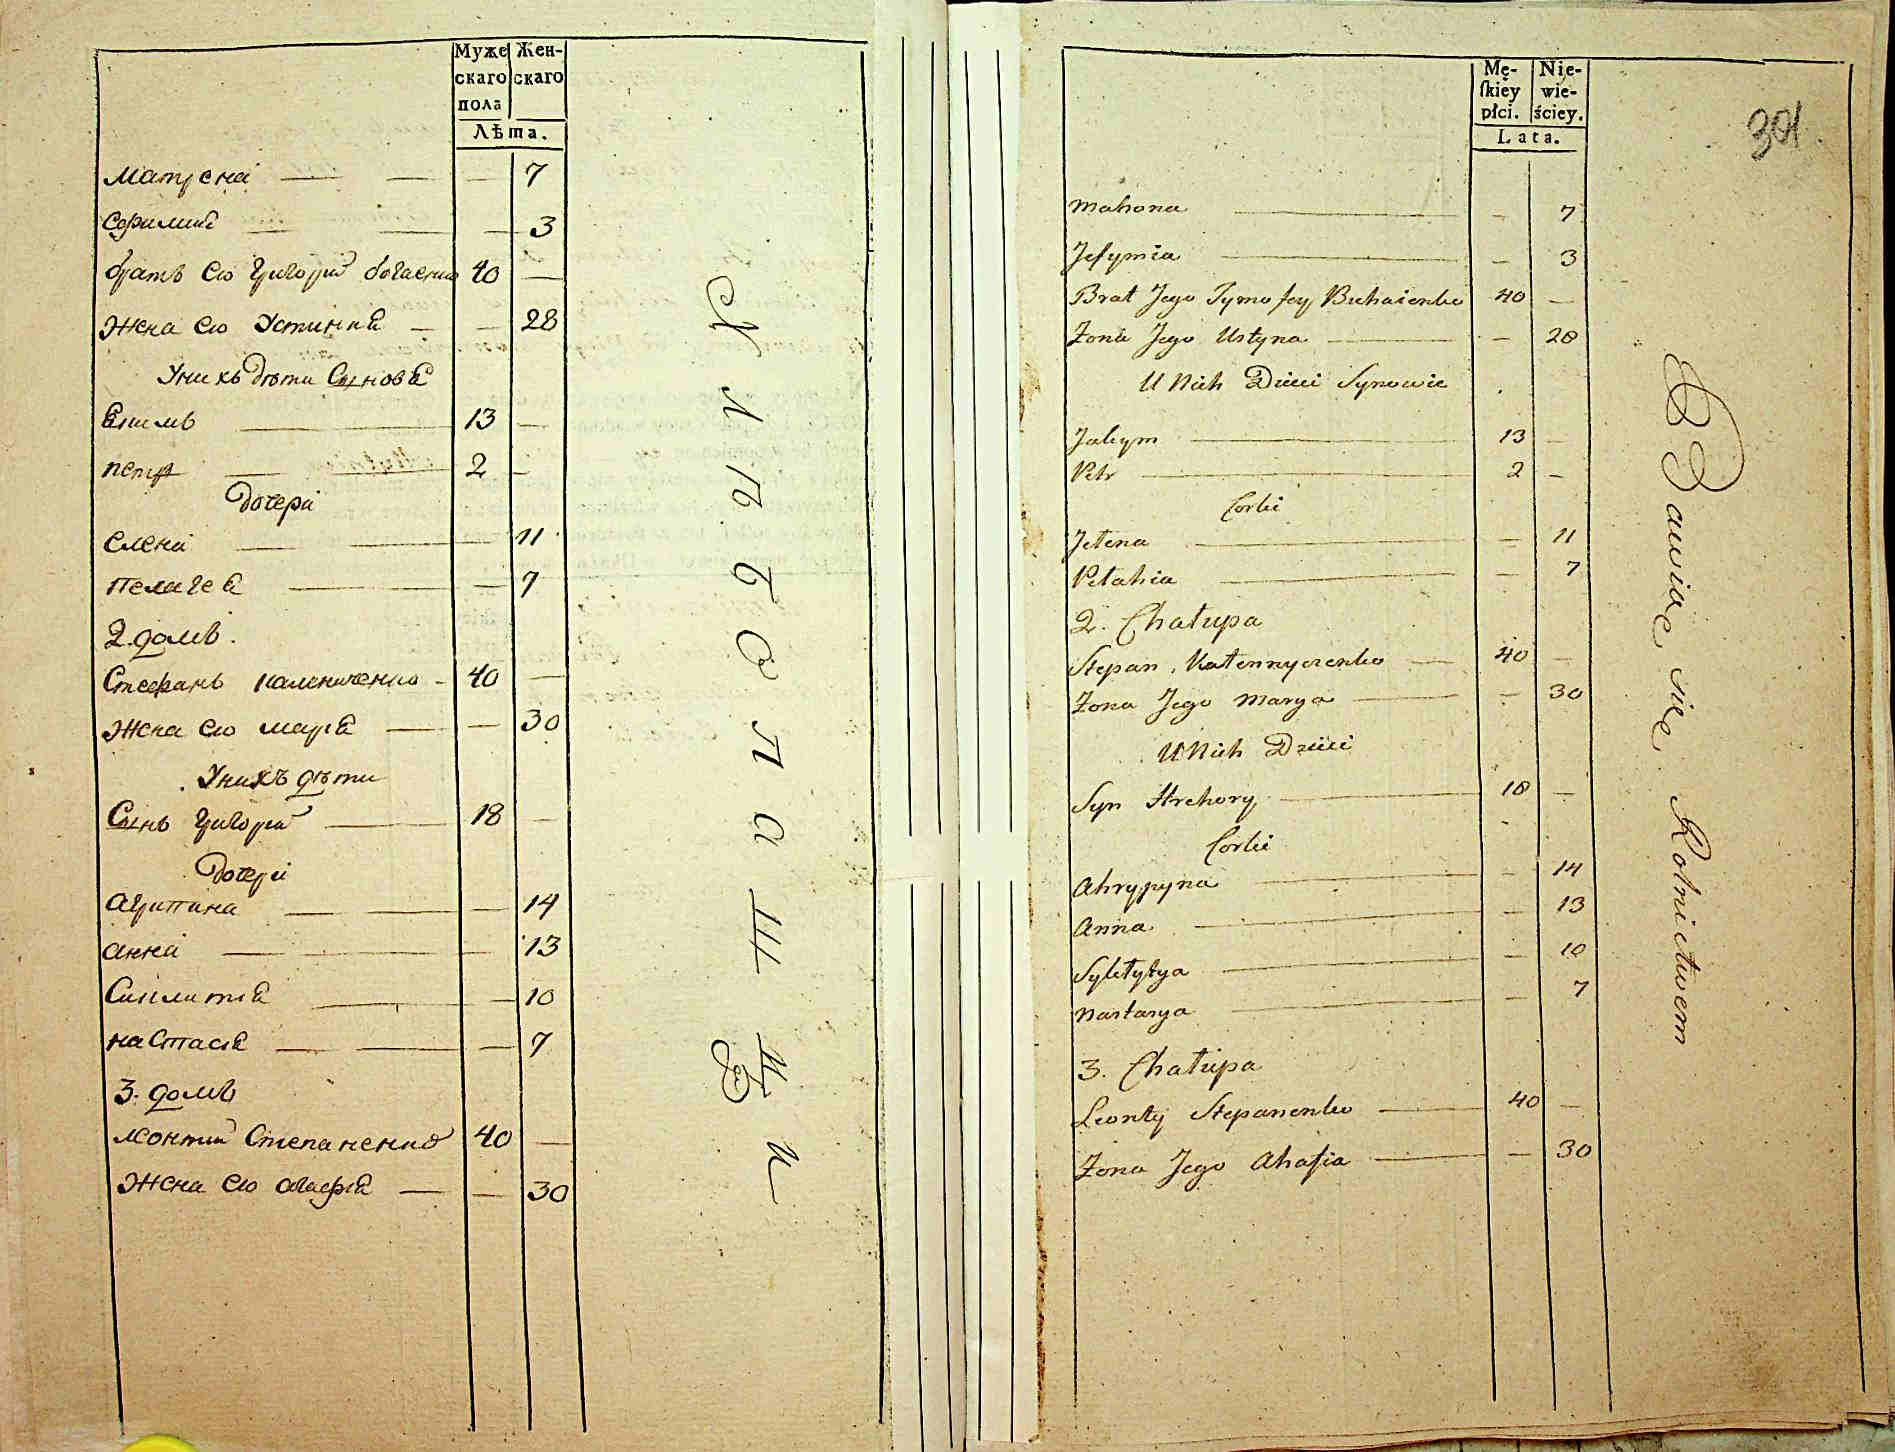 Муже
скаго
пола
Жен-
скаго
Лѣта.
Матрена — 7
Ефимиа — 3
братъ Ево Григори Богаенко 40 —
Жена Ево Устинна — 28
Унихъ Дѣти Сынова
Екимъ 13 —
петръ 2 —
Дочери
елена — 11
пелагеа — 7
2. домъ.
Стефанъ калениченко 40 —
Жена Ево мариа — 30
Унихъ дѣти
Сынъ Григори 18 —
Дочери
агрипина — 14
анна — 13
— 10
настасиа — 7
3. домъ
леонтии Степаненко 40 —
Жена Ево агафиа — 30
Хлѣбопашцы
Mę-
ſkiéy
płci.
Nie-
wie-
ściey.
Lata.
301.
Matrona — 7
Jefymia — 3
Brat Jego Tymofey Buhaienko 40 —
Żona Jego Ustyna — 28
U Nich Dzieci Synowie
Jakym 13
Petr 2 —
Corki
Jełena — 11
Pełahia — 7
2. Chałupa
Stepan Kałennyczenko 40 —
Żona Jego Marya — 30
U Nich Dzieci
Syn Hrehory 18 —
Corki
Ahrypyna — 14
Anna — 13
— 10
Nastasya — 7
3. Chałupa
Leonty Stepanenko 40 —
Żona Jego Ahafia — 30
Bawiąc się Rolnictwem